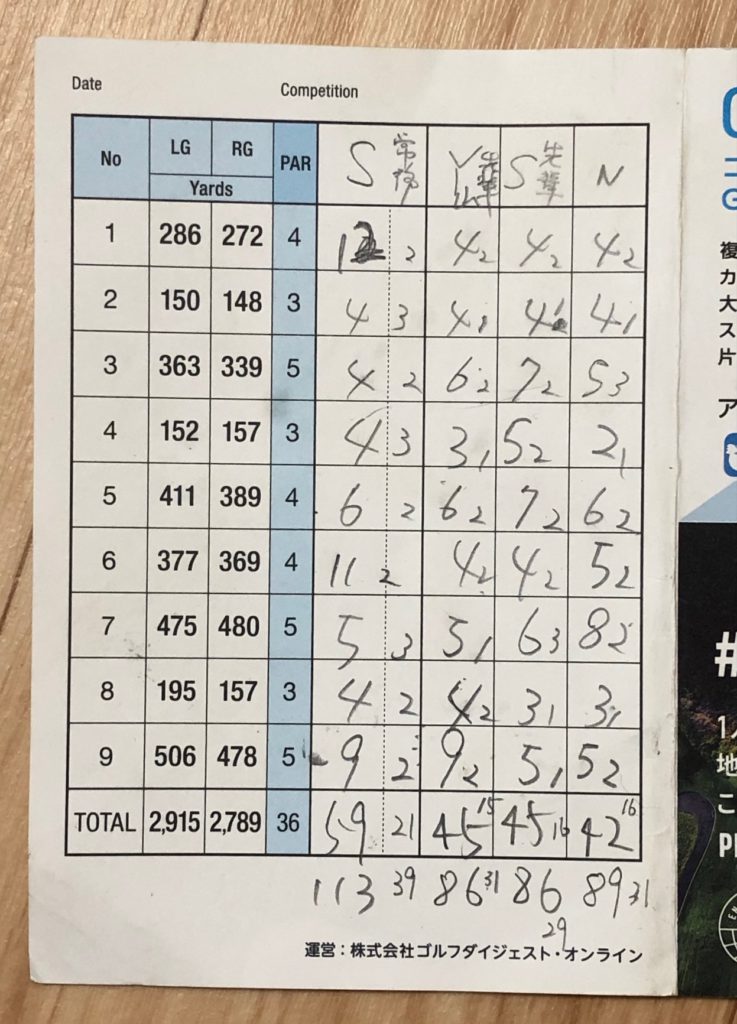 Date Competition
No LG RG PAR S N
Yards
先輩 先輩
1 286 272 4 2 4 2 4 2 4 2
2 150 148 3 4 3 4 1 4 1 4 1
3 363 339 5 4 2 6 2 7 2 5 3
4 152 157 3 4 3 3 1 5 2 2 1
5 411 389 4 6 2 6 2 7 2 6 2
6 377 369 4 11 2 4 2 4 2 5 2
7 475 480 5 5 3 5 1 6 3 8 2
8 195 157 3 4 2 4 2 3 1 3 1
9 506 478 5 9 2 9 2 5 1 5 2
TOTAL 2,915 2,789 36 59 21 45 15 45 16 42 16
113 39 86 31 86 29 89 31
運営：株式会社ゴルフダイジェスト・オンライン
複
カ
大
ス
片
ア
#
1
地
こ